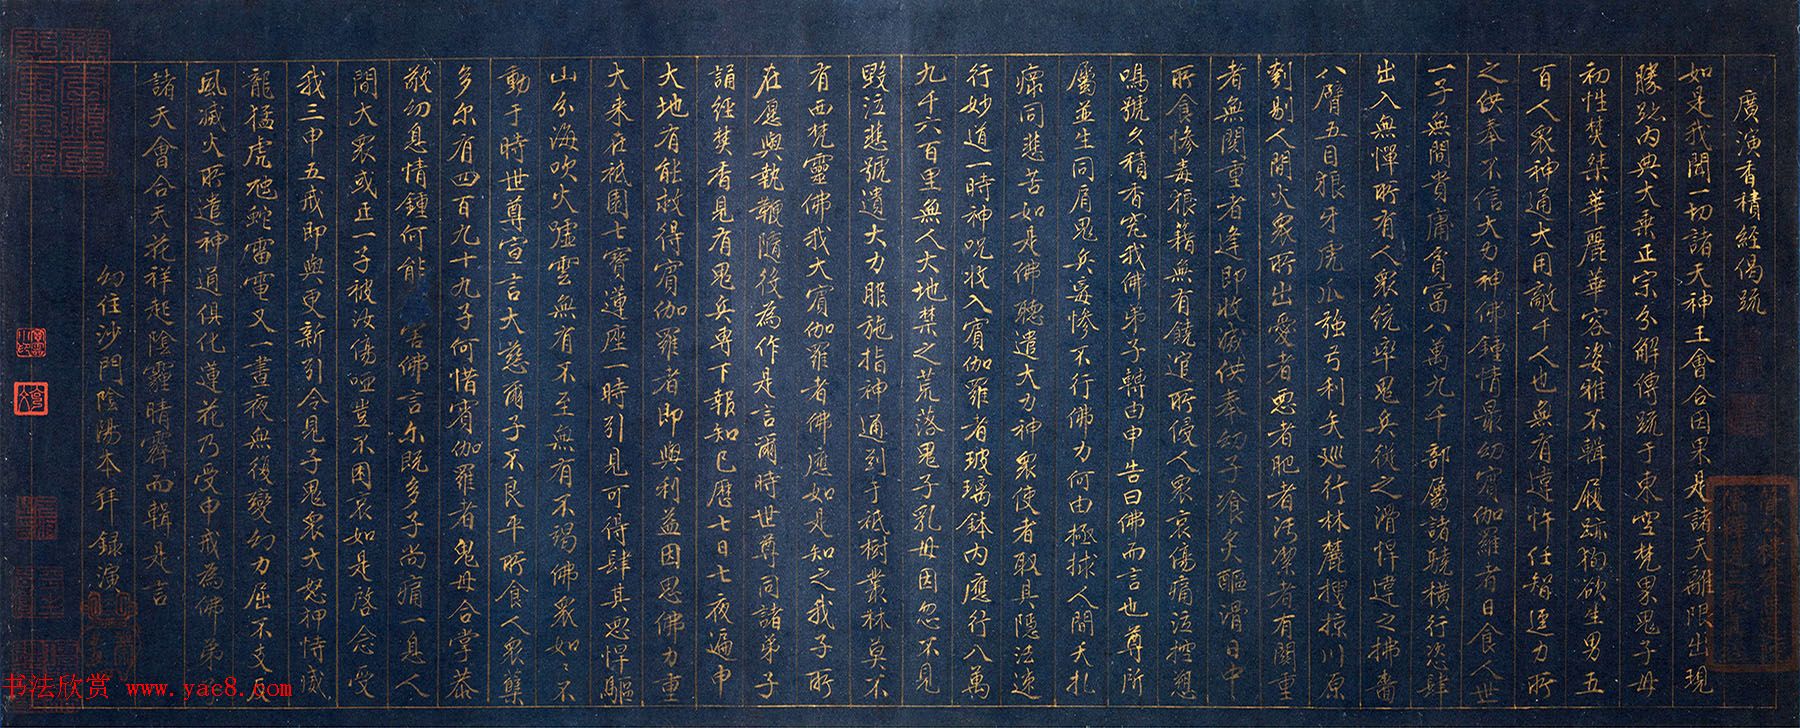 廣演香積經偈疏
如是我聞一切諸天神王會合因果是諸天離限出現
勝跡內典大乘正宗分解傳疏于東空梵果鬼子母
初性焚桀華麗華容姿雅不輯履跡獨欲生男五
百人眾神通大用敵千人也無有違忤任智逞力所
之供奉不信大力神佛鍾情最幼賓伽羅者日食人世
一子無間貴庸貧富八萬九千部屬諸驍橫行恣肆
出入無憚所有人眾統率鬼兵從之滑悍違之拂嗇
八臂五目狼牙虎爪強弓利矢巡行林麓搜掠川原
割剔人間火眾所出愛者惡者肥者活潔者有關重
者無關重者逢即收滅供奉幼子飡炙醧滑日中
所食慘毒狼籍無有饒逭所侵人眾哀傷痛泣控愬
鳴號久積香究我佛弟子轉由申告曰佛而言也尊所
屬並生同肩鬼兵妄慘不行佛力何由極捄人間夭札
瘝同悲苦如是佛聽遣大力神眾使者取具隱法迹
行妙道一時神咒收入賓伽羅者玻璃鉢內應行八萬
九千六百里無人大地禁之荒落鬼子乳母因忽不見
毀泣悲號遺大力服施指神通到于祇樹叢林莫不
有西梵靈佛我大賓伽羅者佛應如是知之我子所
在愿與執鞭隨後為作是言爾時世尊同諸弟子
誦經焚香見有鬼兵專下報知已歷七日七夜遍申
大地有能救得賓伽羅者即與利益因思佛力重
大來在祇園七寶蓮座一時引見可得肆其思悍驅
山分海吹火噓雲無有不至無有不竭佛眾如々不
動于時世尊宣言大慈爾子不良平所食人眾孽
多尔有四百九十九子何惜賓伽羅者鬼母合掌恭
敬幼息情鍾何能 害佛言尔既多子尚痛一息人
間大眾或正一子被汝傷啞豈不困哀如是啓念受
我三申五戒即與更新引令見子鬼眾大怒押恃威
龍猛虎虺蛇雷電又一晝夜無後變幻力屈不支反
風滅火所遣神通俱化蓮花乃受申戒為佛弟子
諸天會合天花祥起陰霾晴霽而輯是言
幻住沙門陰陽本拜錄演
書法欣赏 www.yac8.com